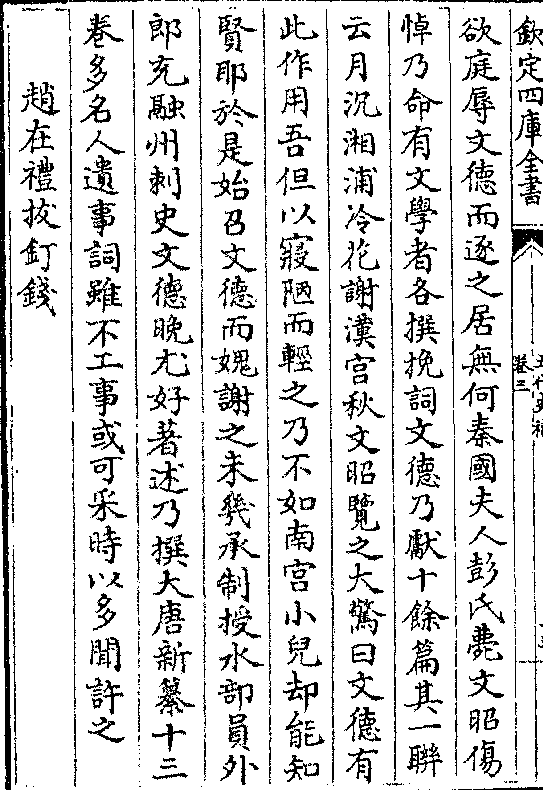 欽定四庫全書
卷三
欲庭辱文德而逐之居無何秦國夫人彭氏薨文昭傷
悼乃命有文學者各撰挽詞文德乃獻十餘篇其一聯
云月沉湘浦冷花謝漢宫秋文昭覽之大驚曰文德有
此作用吾但以寢陋而輕之乃不如南宫小兒却能知
賢耶於是始召文德而媿謝之未幾承制授水部員外
郎充融州刺史文德晚尤好著述乃撰大唐新纂十三
卷多名人遺事詞雖不工事或可采時以多聞許之
趙在禮拔釘錢